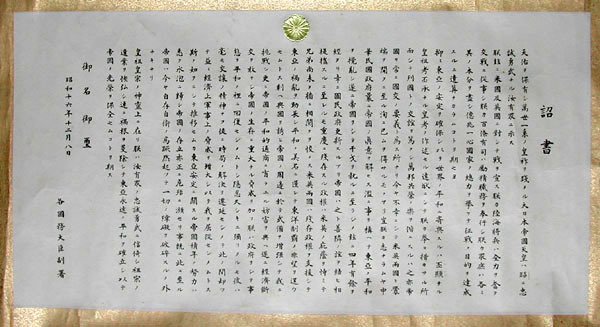 詔書
天佑ヲ保有シ萬世一系ノ皇祚ヲ踐メル大日本帝國天皇ハ昭ニ忠
誠勇武ナル汝有衆ニ示ス
朕茲ニ米國及英國ニ對シテ戰ヲ宣ス朕カ陸海將兵ハ全力ヲ奮テ
交戰ニ從事シ朕カ百僚有司ハ勵精職務ヲ奉行シ朕カ衆庶ハ各々
其ノ本分ヲ盡シ億兆一心國家ノ總力ヲ擧ケテ征戰ノ目的ヲ達成
スルニ遺算ナカラムコトヲ期セヨ
抑々東亞ノ安定ヲ確保シ以テ世界ノ平和ニ寄與スルハ丕顯ナル
皇祖考丕承ナル皇考ノ作述セル遠猷ニシテ朕カ拳々措カサル所
而シテ列國トノ交誼ヲ篤クシ萬邦共榮ノ樂ヲ偕ニスルハ之亦帝
國カ常ニ國交ノ要義ト爲ス所ナリ今ヤ不幸ニシテ米英兩國ト釁
端ヲ開クニ至ル洵ニ已ムヲ得サルモノアリ豈朕カ志ナラムヤ中
華民國政府曩ニ帝國ノ眞意ヲ解セス濫ニ事ヲ構ヘテ東亞ノ平和
ヲ攪亂シ遂ニ帝國ヲシテ干戈ヲ執ルニ至ラシメ茲ニ四年有餘ヲ
經タリ幸ニ國民政府更新スルアリ帝國ハ之ト善隣ノ誼ヲ結ヒ相
提携スルニ至レルモ重慶ニ殘存スル政權ハ米英ノ庇蔭ヲ恃ミテ
兄弟尚未タ牆ニ相鬩クヲ悛メス米英兩國ハ殘存政權ヲ支援シテ
東亞ノ禍亂ヲ助長シ平和ノ美名ニ匿レテ東洋制覇ノ非望ヲ逞ウ
セムトス剰ヘ與國ヲ誘ヒ帝國ノ周邊ニ於テ武備ヲ增強シテ我ニ
挑戰シ更ニ帝國ノ平和的通商ニ有ラユル妨害ヲ與ヘ遂ニ經濟斷
交ヲ敢テシ帝國ノ生存ニ重大ナル脅威ヲ加フ朕ハ政府ヲシテ事
態ヲ平和ノ裡ニ囘復セシメムトシ隱忍久シキニ彌リタルモ彼ハ
毫モ交讓ノ精神ナク徒ニ時局ノ解決ヲ遷延セシメテ此ノ間却ツ
テ益々經濟上軍事上ノ脅威ヲ增大シ以テ我ヲ屈從セシメムトス
斯ノ如クニシテ推移セムカ東亞安定ニ關スル帝國積年ノ努力ハ
悉ク水泡ニ帰シ帝國ノ存立亦正ニ危殆ニ瀕セリ事既ニ此ニ至ル
帝國ハ今ヤ自存自衞ノ爲蹶然起ツテ一切ノ障礙ヲ破碎スルノ外
ナキナリ
皇祖皇宗ノ神靈上ニ在リ朕ハ汝有衆ノ忠誠勇武ニ信倚シ祖宗ノ
遺業ヲ恢弘シ速ニ禍根ヲ芟除シテ東亞永遠ノ平和ヲ確立シ以テ
帝國ノ光榮ヲ保全セムコトヲ期ス
御名御璽
昭和十六年十二月八日
各國務大臣副署